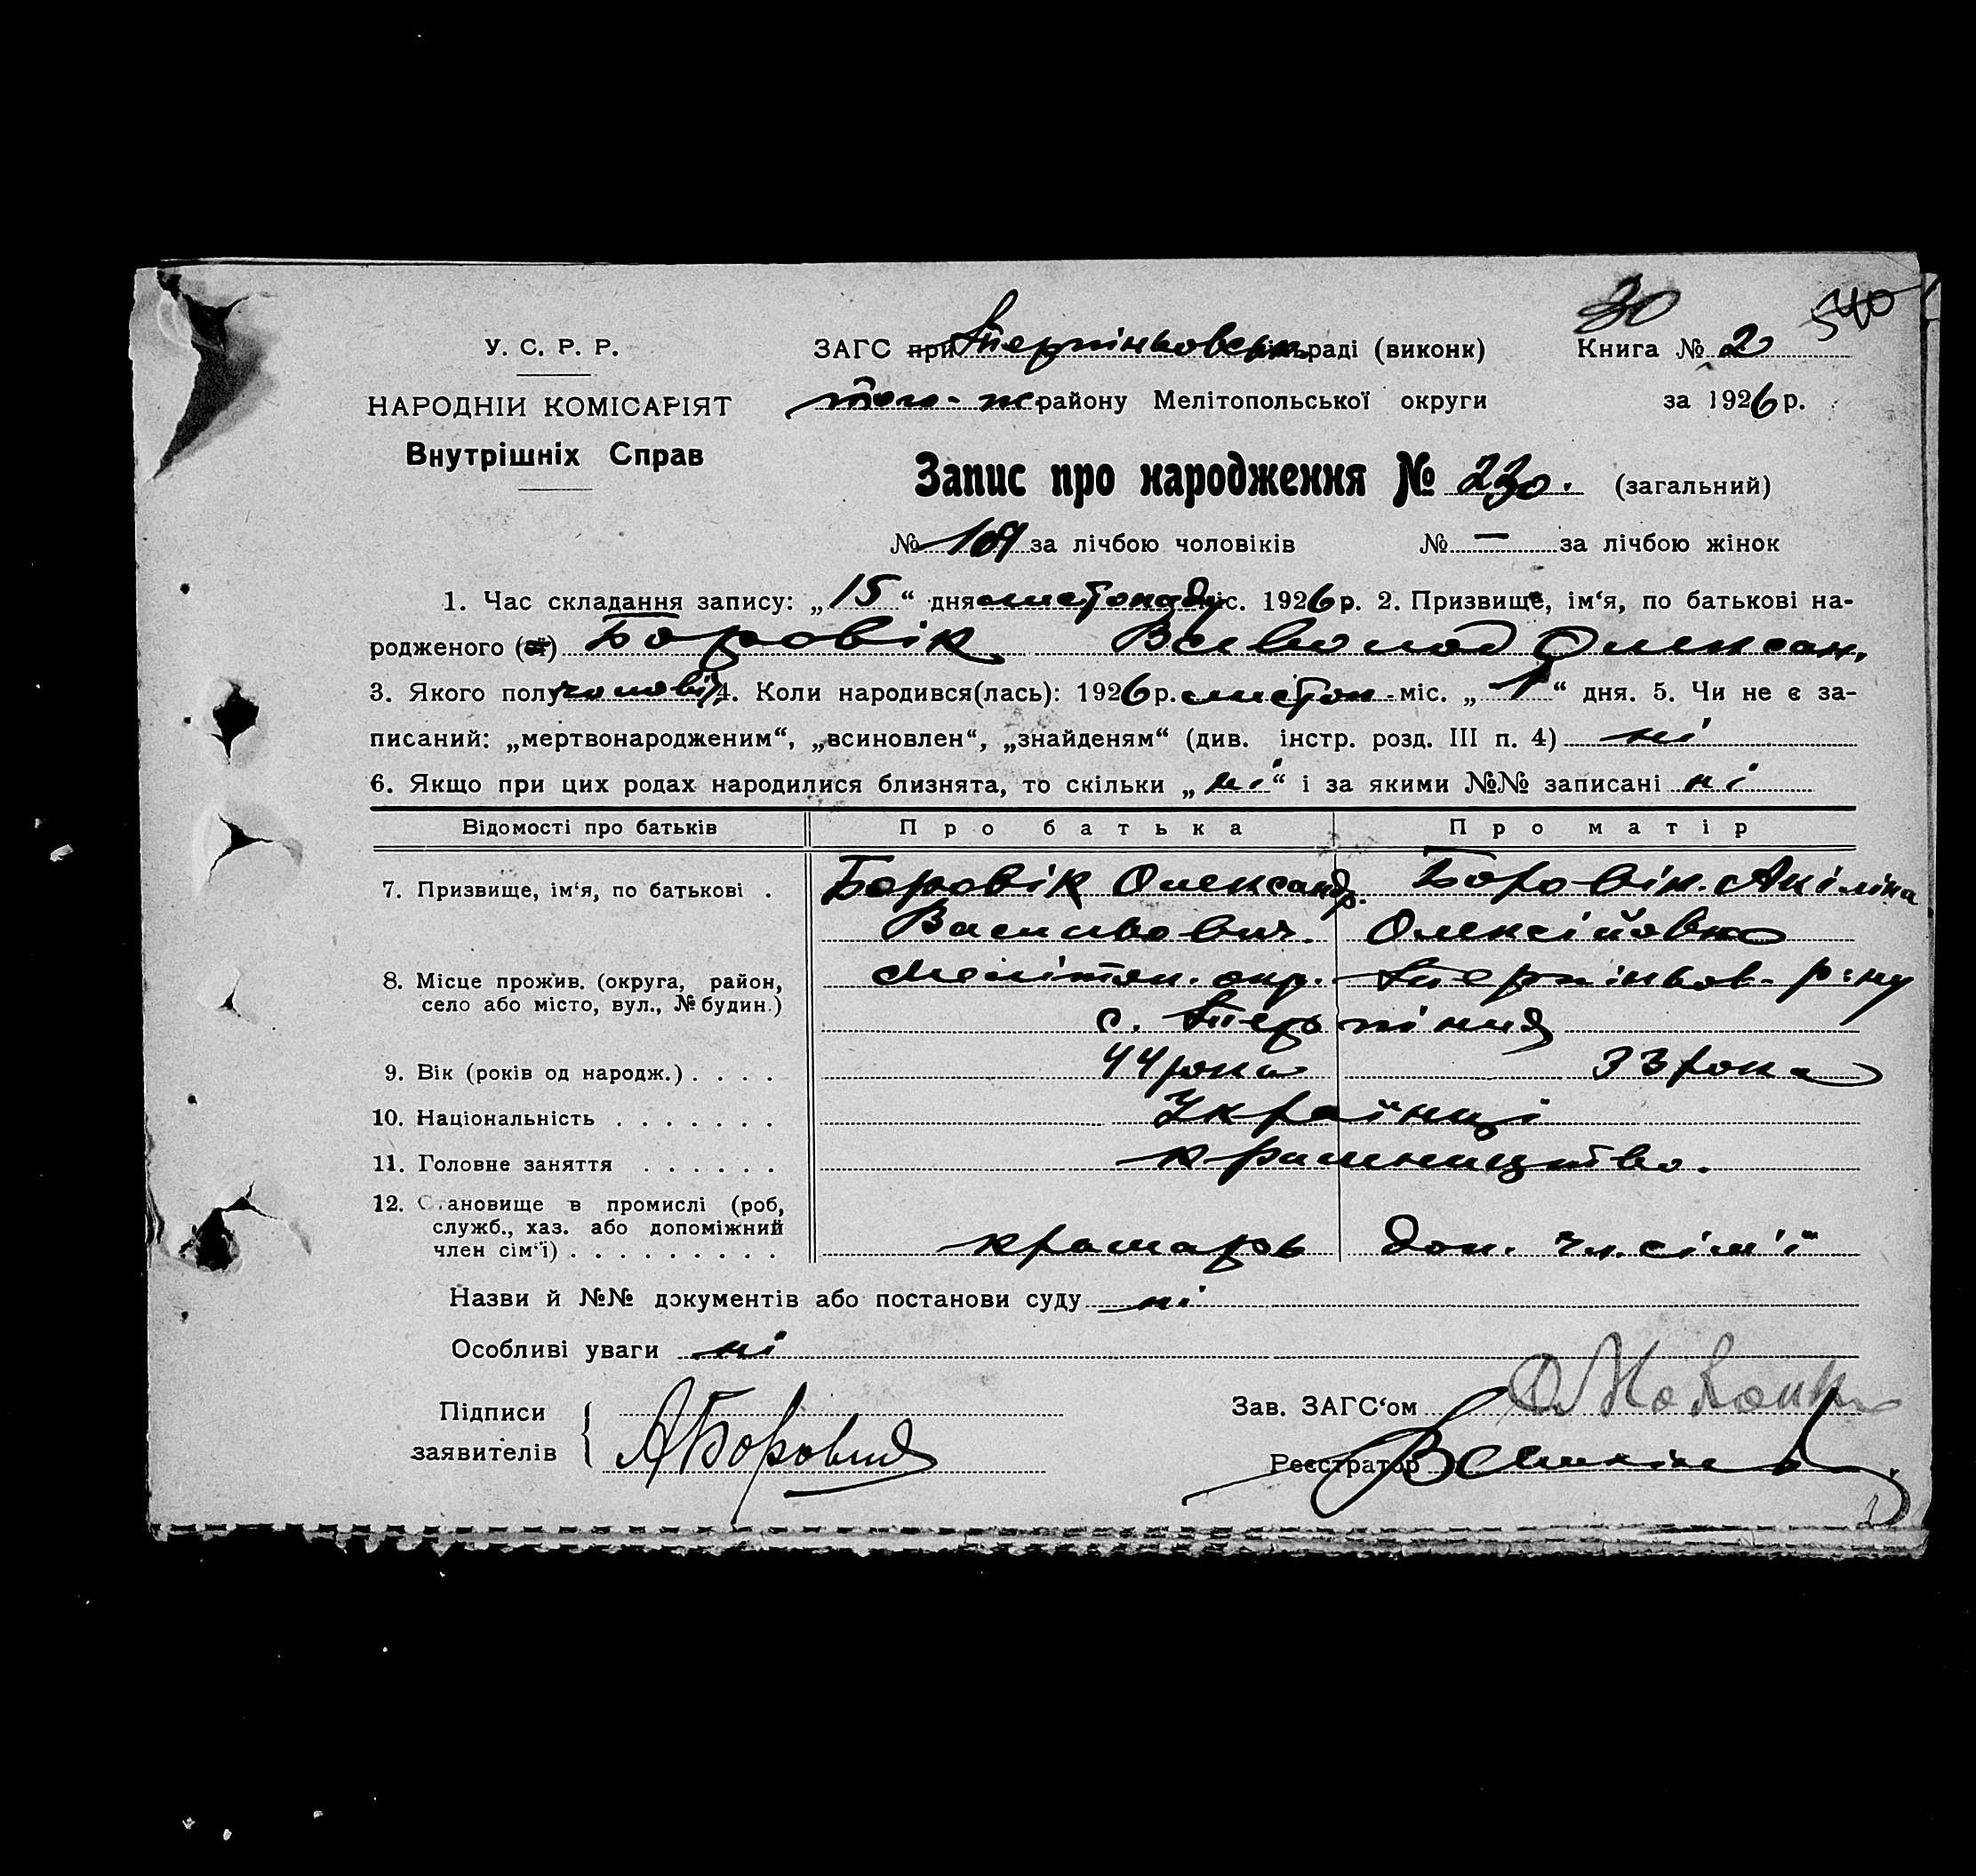 30 540
У. С. Р. Р. ЗАГС при Терпіньовськ. раді (виконк) Книга № 2
НАРОДНІЙ КОМІСАРІЯТ того-ж району Мелітопольської округи за 1926 р.
Внутрішніх Справ
Запис про народження № 230. (загальний)
№ 109 за лічбою чоловіків № — за лічбою жінок
1. Час складання запису: „15“ дня листопаду міс. 1926 р. 2. Призвище, ім‘я, по батькові на-
родженого (ої) Боровік Всеволод Олексан.
3. Якого полу чоловіч. 4. Коли народився(лась): 1926 р. листоп. міс. „1“ дня. 5. Чи не є за-
писаний: „мертвонародженим“, „всиновлен“, „знайденям“ (див. інстр. розд. III п. 4) ні
6. Якщо при цих родах народилися близнята, то скільки „ні“ і за якими №№ записані ні
Відомості про батьків Про батька Про матір
7. Призвище, ім‘я, по батькові . Боровік Олександр. Боровік. Акіліна
Васильович. Олексійовна
8. Місце прожив. (округа, район, Мелітоп. окр. Терпіньов. р-ну
село або місто, вул., № будин.) с. Терпіння
9. Вік (років од народж.) . . . . 44 рока 33 рока
10. Національність . . . . . . . Українці
11. Головне заняття . . . . . . крамництво.
12. Становище в промислі (роб,
служб., хаз. або допоміжний
член сім‘ї) . . . . . . . . . крамарь доп. чл. сім'ї
Назви й №№ документів або постанови суду ні
Особливі уваги ні
Підписи Зав. ЗАГС‘ом
заявителів АБоровик Реєстратор